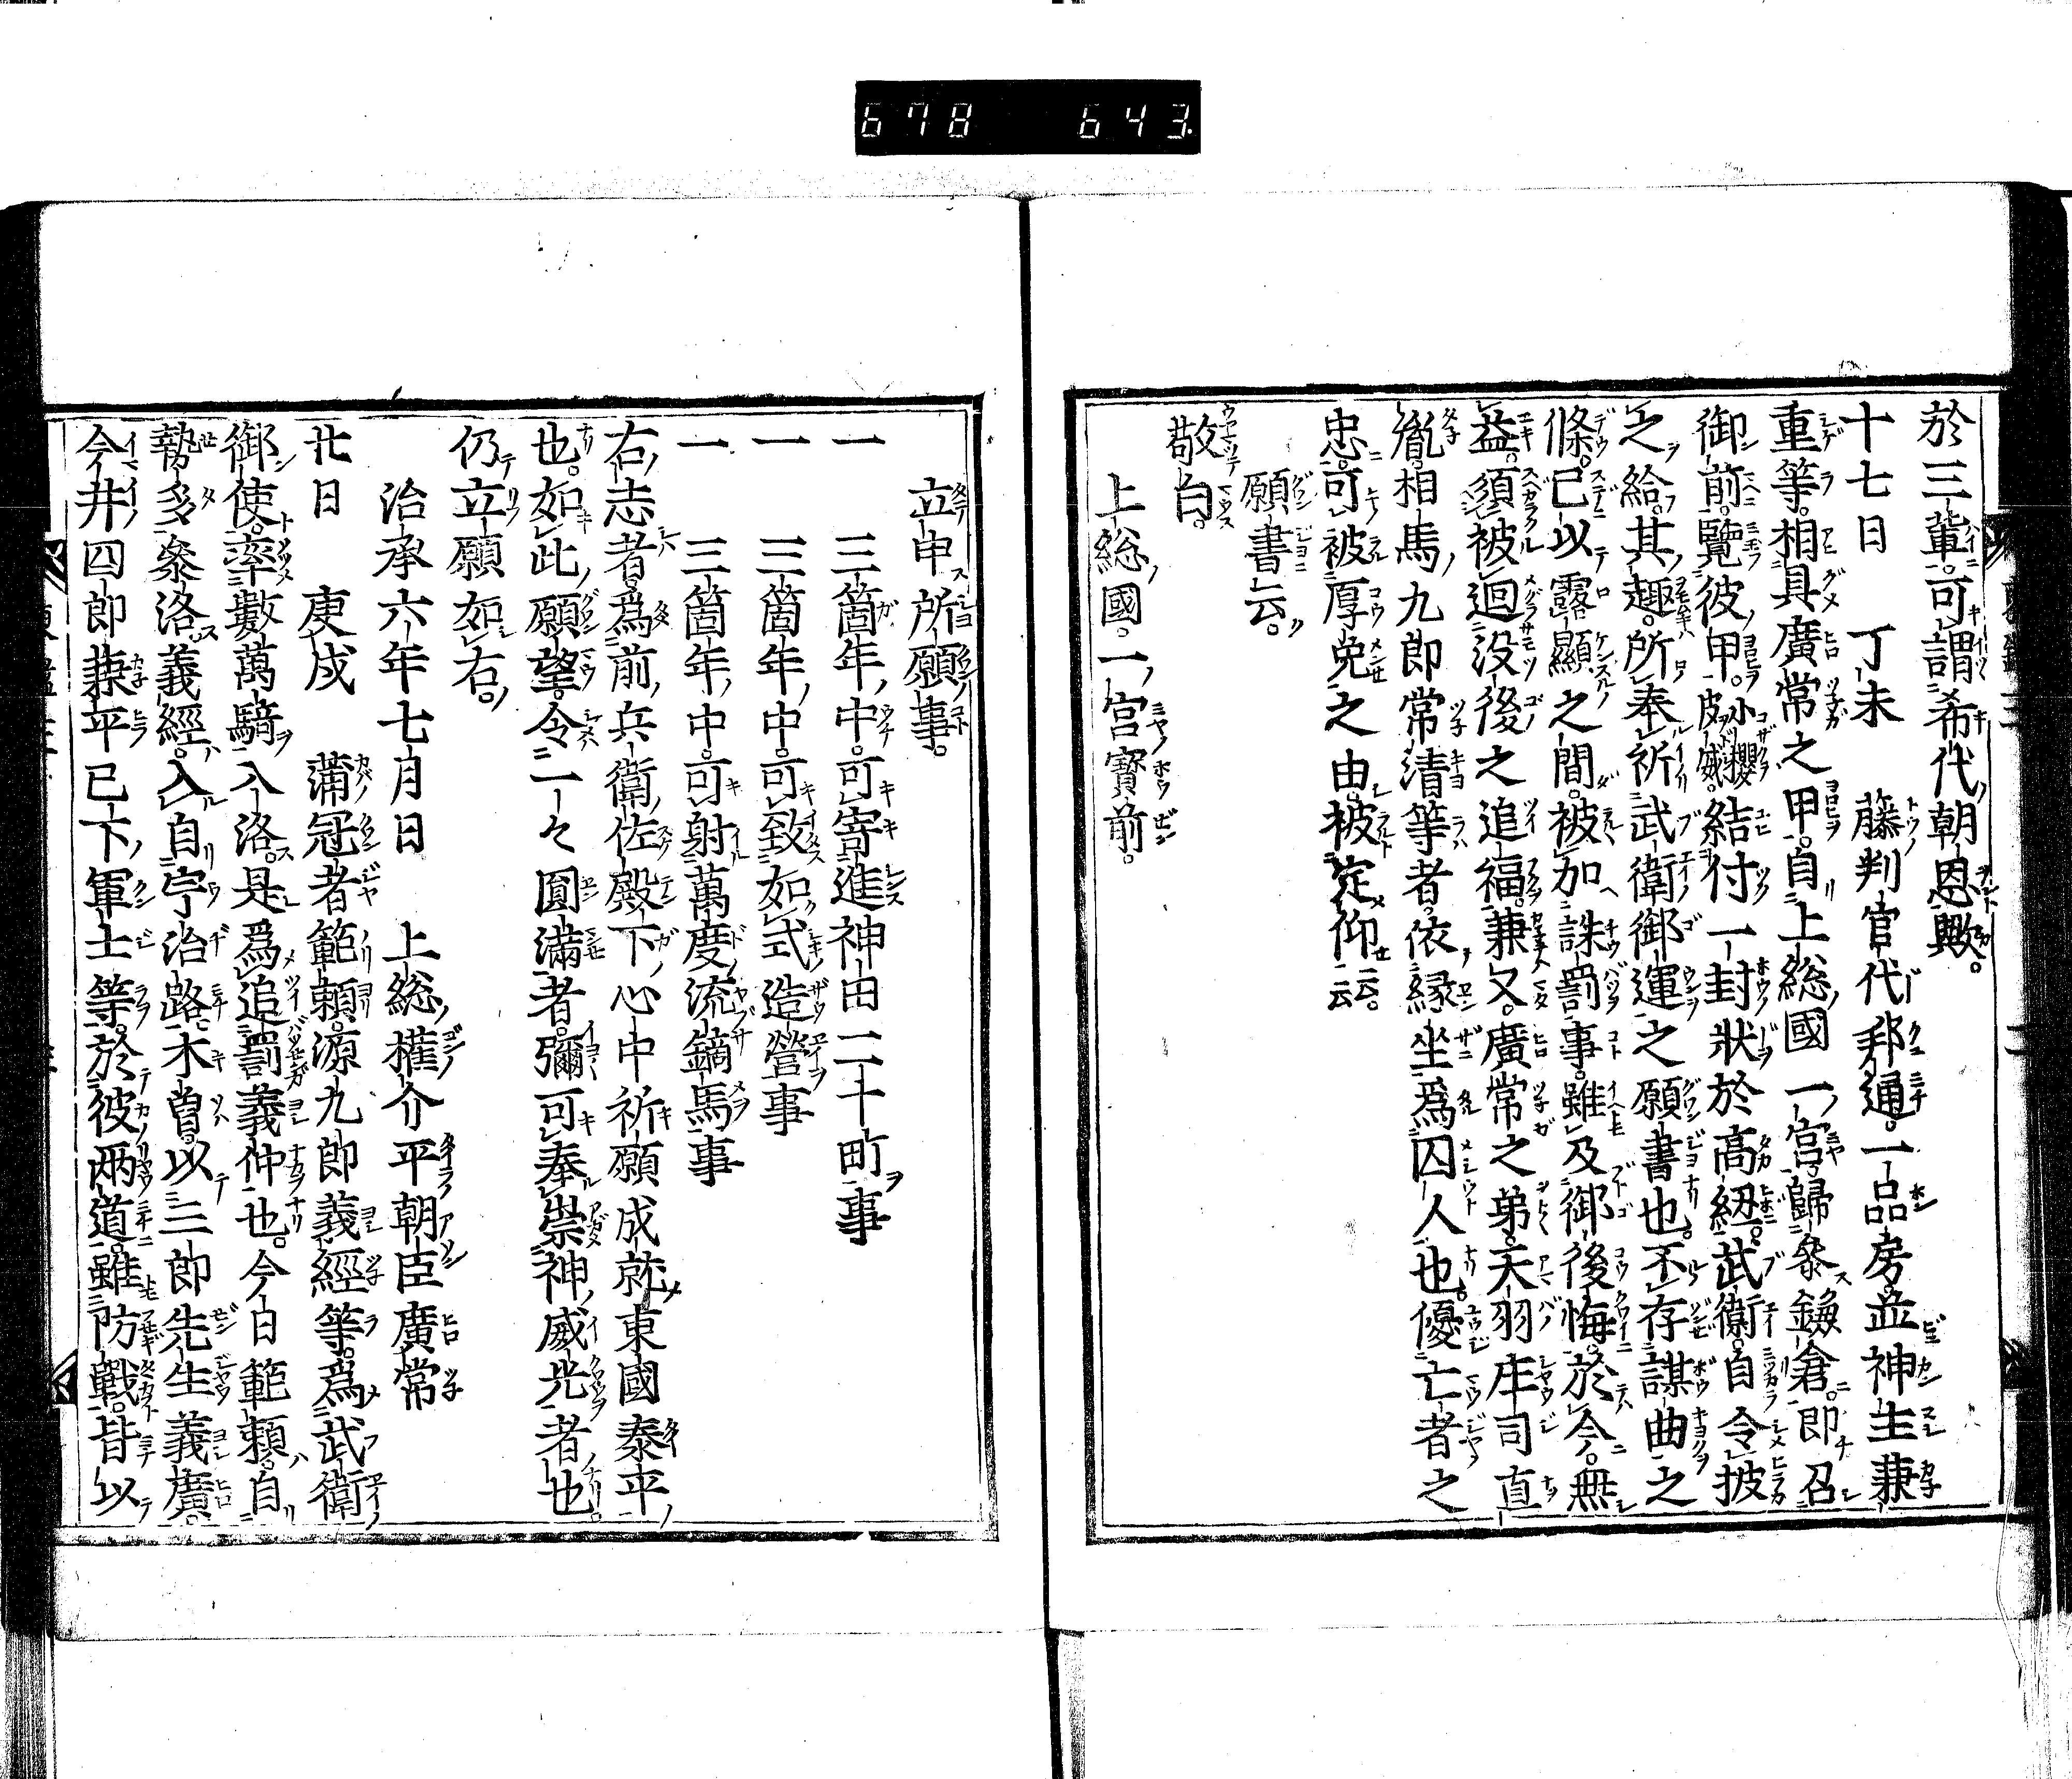 678 643
於三輩。可謂希代朝恩歟。
十七日 丁未 藤判官代邦通。一品房。並神主兼
重等。相具廣常之甲。自上総國一宮。歸參鎌倉。即召
御前。覽彼甲。小櫻皮威。結付一封狀於高紐。武衛。自令披
之給。其趣。所奉祈武衛御運之願書也。不存謀曲之
條。已以露顯之間。被加誅罰事。雖及御後悔。於今。無
益。須被廻没後之追福。兼又。廣常之弟。天羽庄司直
胤。相馬九郎常清等者。依縁坐為囚人也。優亡者之
忠。可被厚免之由。被定仰云云。
願書云。
敬白。
上総國。一宮寳前。
立申所願事。
一 三箇年中。可寄進神田二十町事
一 三箇年中。可致如式造營事
一 三箇年中。可射萬度流鏑馬事
右志者。為前兵衛佐殿下。心中祈願成就東國泰平
也。如此願望。令一々圓滿者。彌可奉崇神威光者也。
仍立願如右。
治承六年七月日 上総權介平朝臣廣常
廿日 庚戌 蒲冠者範頼。源九郎義經等。爲武衛
御使。率數萬騎入洛。是爲追罰義仲也。今日範頼。自
勢多參洛。義經。入自宇治路。木曽。以三郎先生義廣。
今井四郎兼平已下軍士等。於彼兩道。雖防戰。皆以